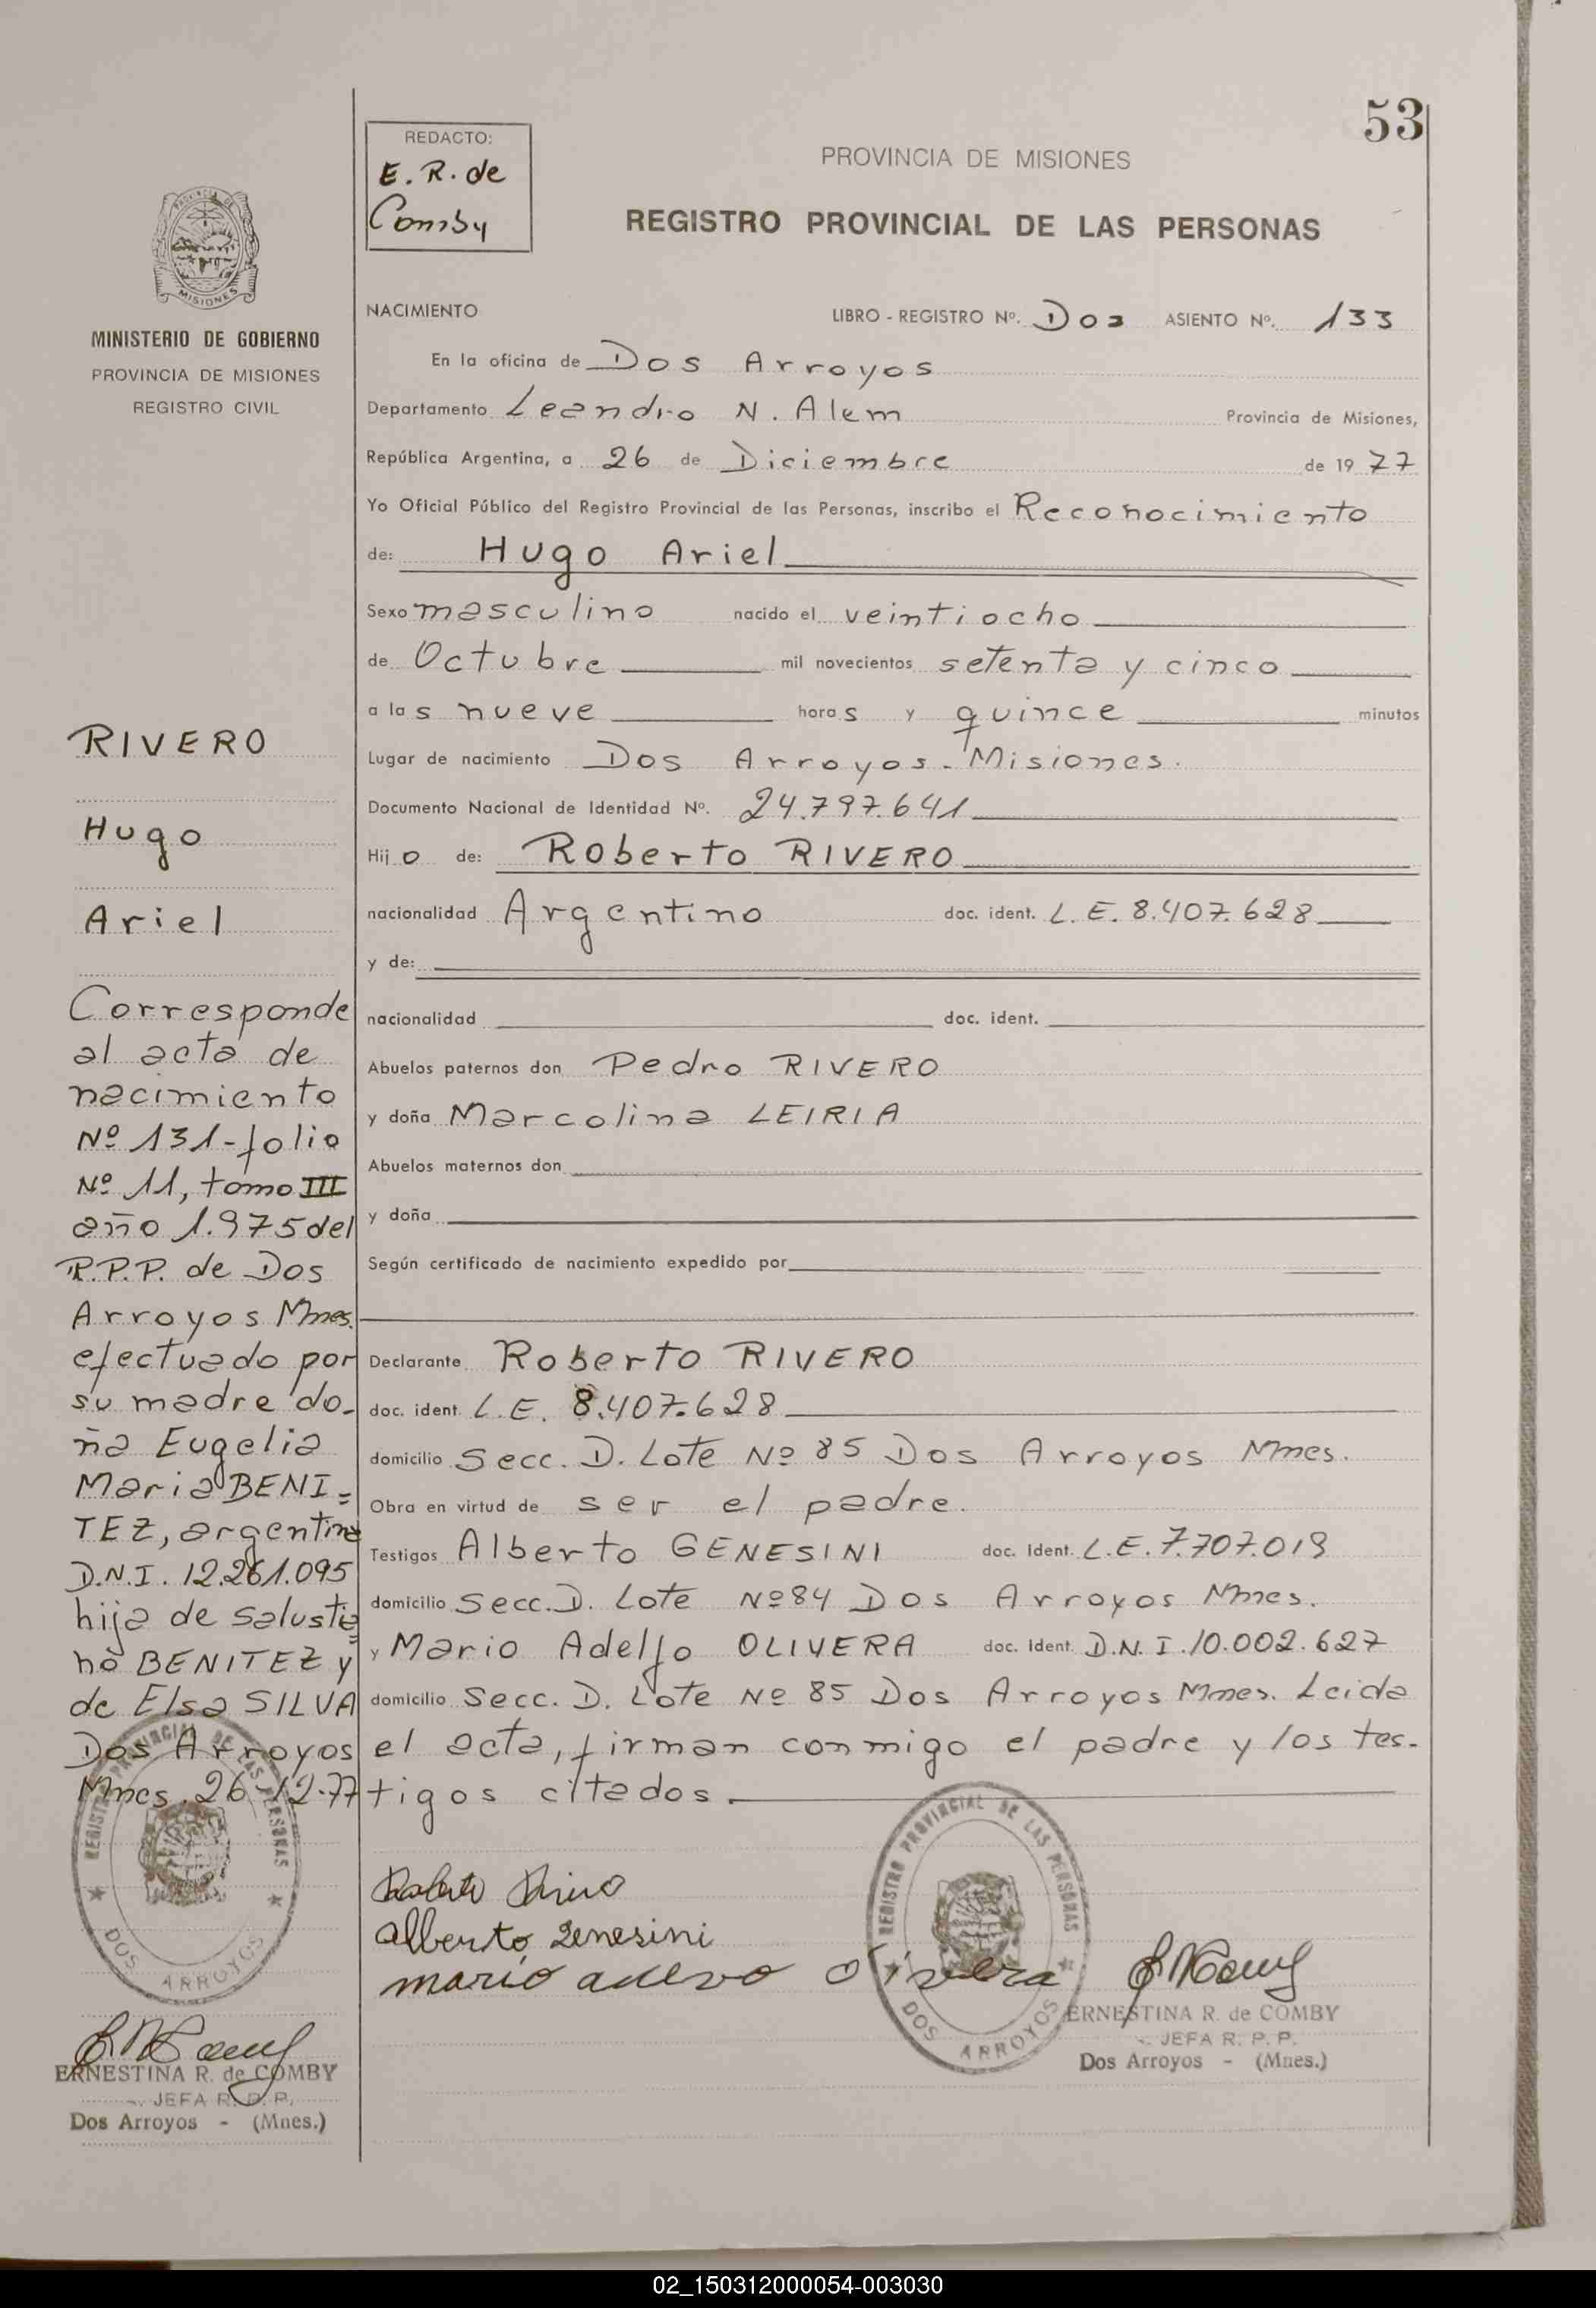 53
REDACTO:
E. R. de
Comby
PROVINCIA DE MISIONES
REGISTRO PROVINCIAL DE LAS PERSONAS
MISIONES
MINISTERIO DE GOBIERNO
PROVINCIA DE MISIONES
REGISTRO CIVIL
RIVERO
Hugo
Ariel
Corresponde
al acta de
nacimiento
Nº 131-folio
Nº 11, tomo III
año 1.975 del
R.P.P. de Dos
Arroyos Mnes.
efectuado por
su madre do-
ña Eugelia
Maria BENI=
TEZ, argentina
D.N.I. 12.261.095
hija de Salustia=
no BENITEZ y
de Elsa SILVA
Dos Arroyos
Mnes. 26-12-77
REGISTRO PROVINCIAL DE LAS PERSONAS
DOS ARROYOS
ERNESTINA R. de COMBY
JEFA R. P. P.
Dos Arroyos - (Mnes.)
NACIMIENTO LIBRO - REGISTRO Nº. Dos ASIENTO Nº. 133
En la oficina de Dos Arroyos
Departamento Leandro N. Alem Provincia de Misiones,
República Argentina, a 26 de Diciembre de 1977
Yo Oficial Público del Registro Provincial de las Personas, inscribo el Reconocimiento
de: Hugo Ariel
Sexo masculino nacido el veintiocho
de Octubre mil novecientos setenta y cinco
a las nueve horas y quince minutos
Lugar de nacimiento Dos Arroyos - Misiones.
Documento Nacional de Identidad Nº. 24.797.641
Hijo de: Roberto RIVERO
nacionalidad Argentino doc. ident. L.E. 8.407.628
y de:
nacionalidad doc. ident.
Abuelos paternos don Pedro RIVERO
y doña Marcolina LEIRIA
Abuelos maternos don
y doña
Según certificado de nacimiento expedido por
Declarante Roberto RIVERO
doc. ident. L.E. 8.407.628
domicilio Secc. D. Lote Nº 85 Dos Arroyos Mnes.
Obra en virtud de ser el padre.
Testigos Alberto GENESINI doc. Ident. L.E. 7.707.019
domicilio Secc. D. Lote Nº 84 Dos Arroyos Mnes.
y Mario Adelfo OLIVERA doc. Ident. D.N.I. 10.002.627
domicilio Secc. D. Lote Nº 85 Dos Arroyos Mnes. Leida
el acta, firman conmigo el padre y los tes-
tigos citados.
Roberto Rivero
alberto Genesini
mario adelfo olivera
REGISTRO PROVINCIAL DE LAS PERSONAS
DOS ARROYOS
ERNESTINA R. de COMBY
JEFA R. P. P.
Dos Arroyos - (Mnes.)
02_150312000054-003030